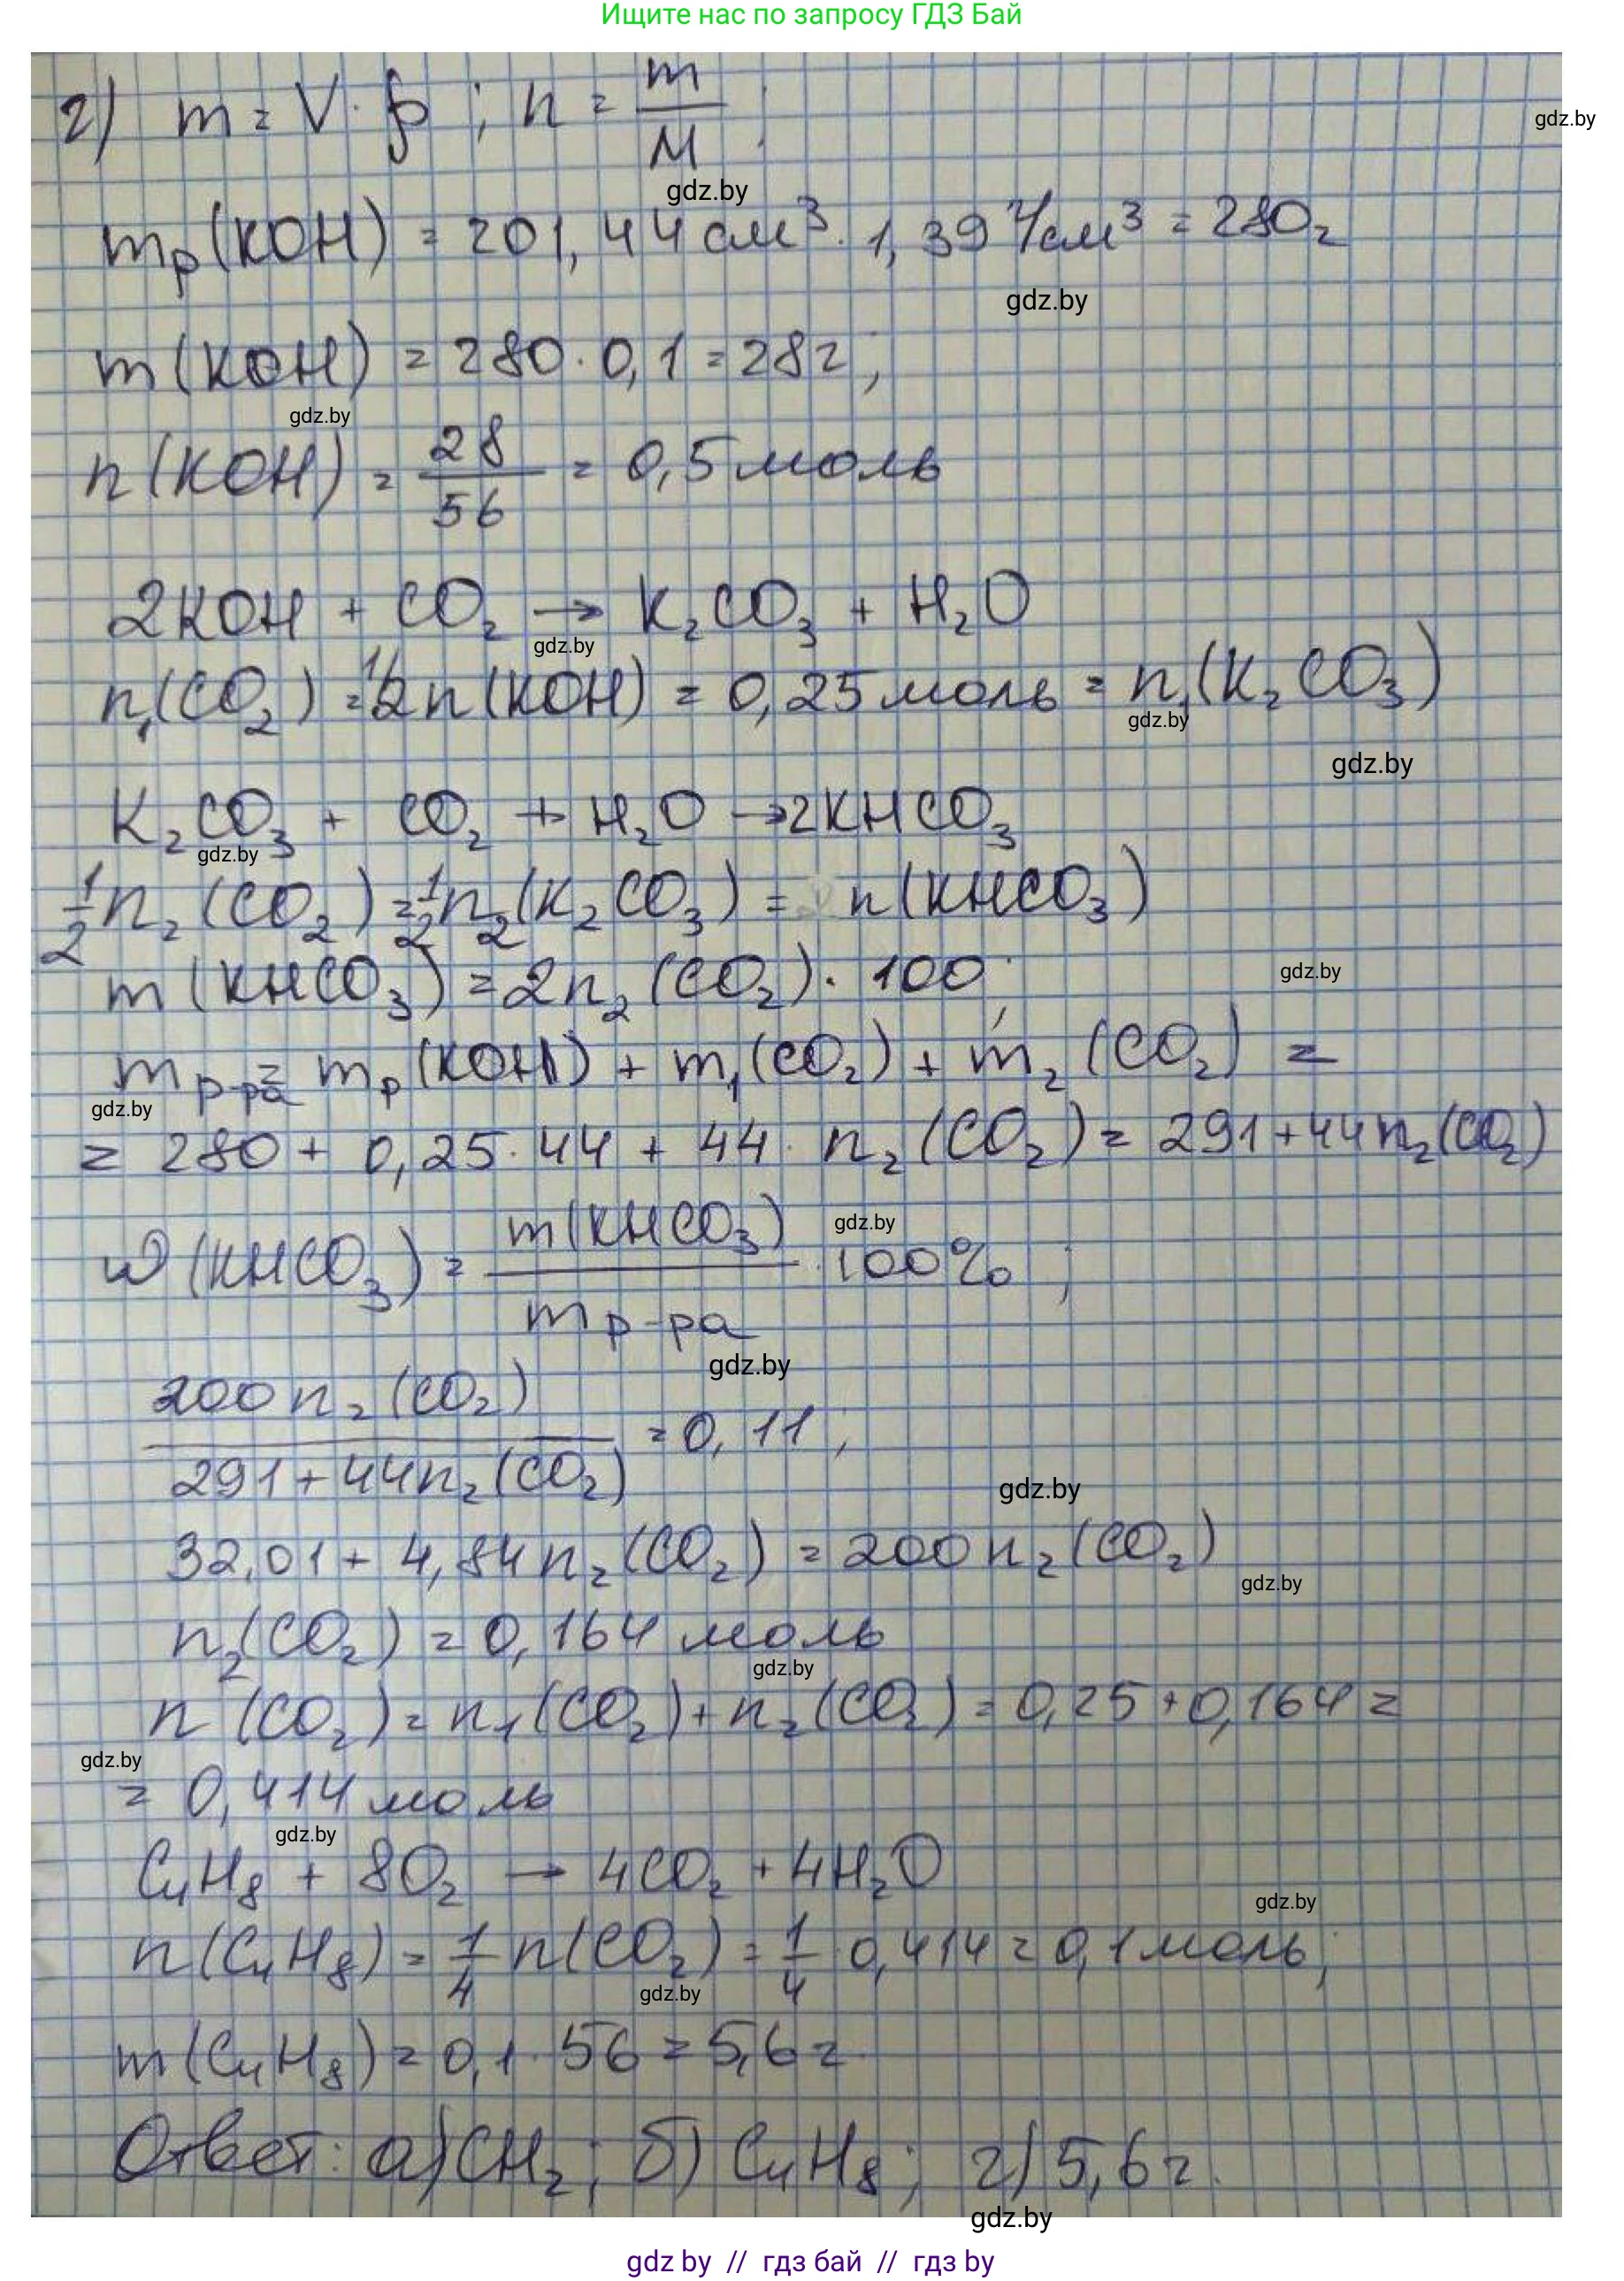 Ищите нас по запросу ГДЗ Бай
г) m = V · ρ ; n = m/M ;
gdz.by
gdz.by
mр(KOH) = 201,44 см³ · 1,39 г/см³ = 280г
gdz.by
m(KOH) = 280 · 0,1 = 28г;
gdz.by
n(KOH) = 28/56 = 0,5 моль
2KOH + CO₂ → K₂CO₃ + H₂O
gdz.by
n₁(CO₂) = 1/2 n(KOH) = 0,25 моль = n₁(K₂CO₃)
gdz.by
gdz.by
K₂CO₃ + CO₂ + H₂O → 2KHCO₃
gdz.by
1/2 n₂(CO₂) = 1/2 n₂(K₂CO₃) = n(KHCO₃)
gdz.by
m(KHCO₃) = 2n₂(CO₂) · 100;
mр-ра = mр(KOH) + m₁(CO₂) + m₂(CO₂) =
gdz.by
= 280 + 0,25 · 44 + 44 · n₂(CO₂) = 291 + 44n₂(CO₂)
gdz.by
ω(KHCO₃) = m(KHCO₃)/mр-ра · 100% ;
gdz.by
200n₂(CO₂)/291+44n₂(CO₂) = 0,11;
gdz.by
32,01 + 4,84n₂(CO₂) = 200n₂(CO₂)
gdz.by
n₂(CO₂) = 0,164 моль
gdz.by
n(CO₂) = n₁(CO₂) + n₂(CO₂) = 0,25 + 0,164 =
gdz.by
= 0,414 моль
gdz.by
C₄H₈ + 8O₂ → 4CO₂ + 4H₂O
gdz.by
n(C₄H₈) = 1/4 n(CO₂) = 1/4 · 0,414 = 0,1 моль;
gdz.by
m(C₄H₈) = 0,1 · 56 = 5,6 г.
Ответ: а) CH₂; б) C₄H₈; г) 5,6г.
gdz.by
gdz by // гдз бай // гдз by